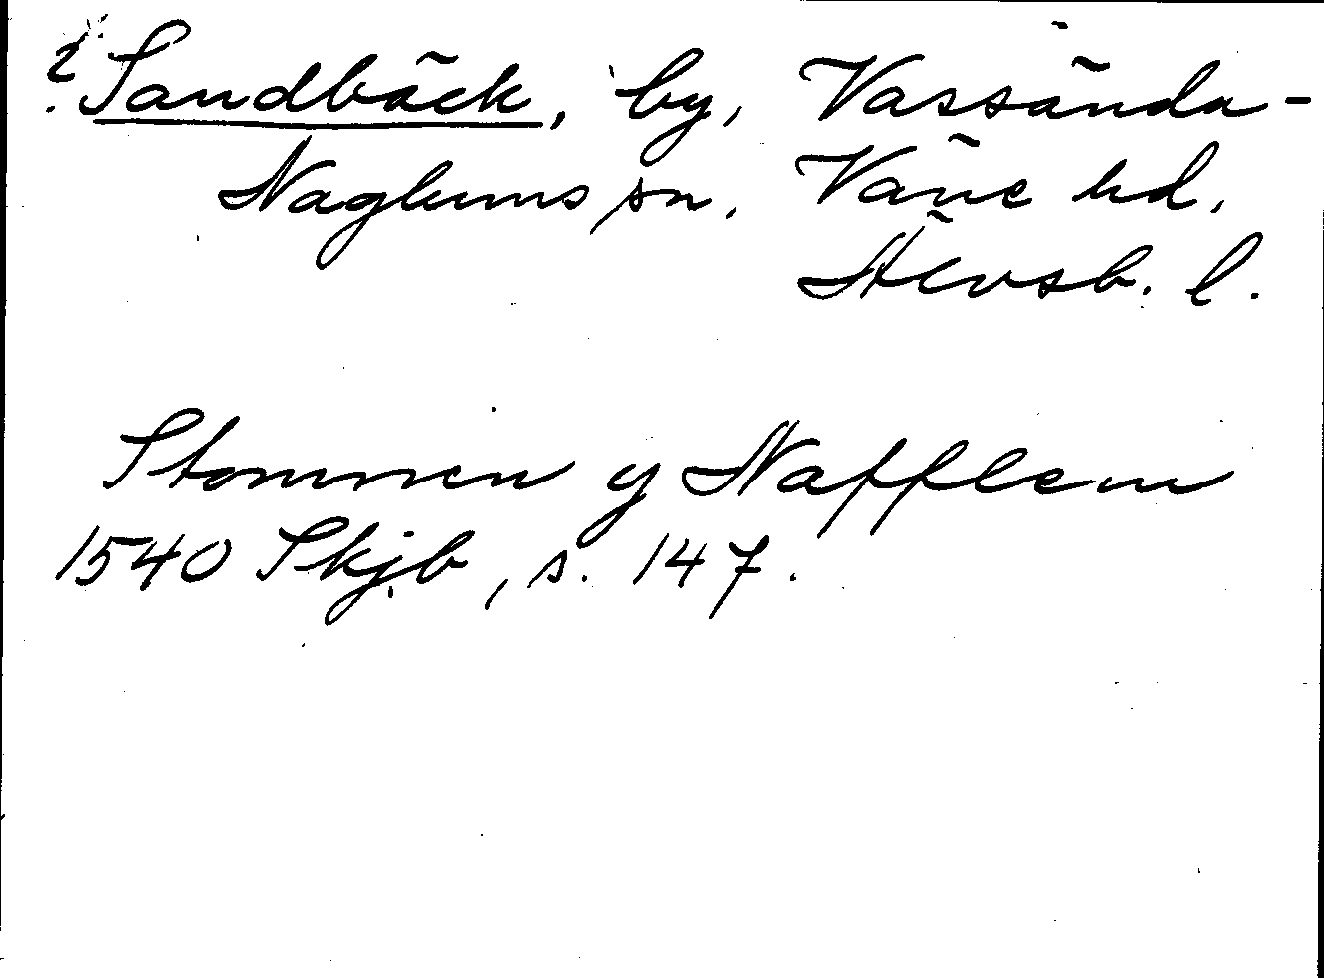 ? Sandbäck, by, Vassända-
Naglums sn. Väne hd,
Älvsb. l.
Stommen y Nafflem
1540 Skjb, s. 147.